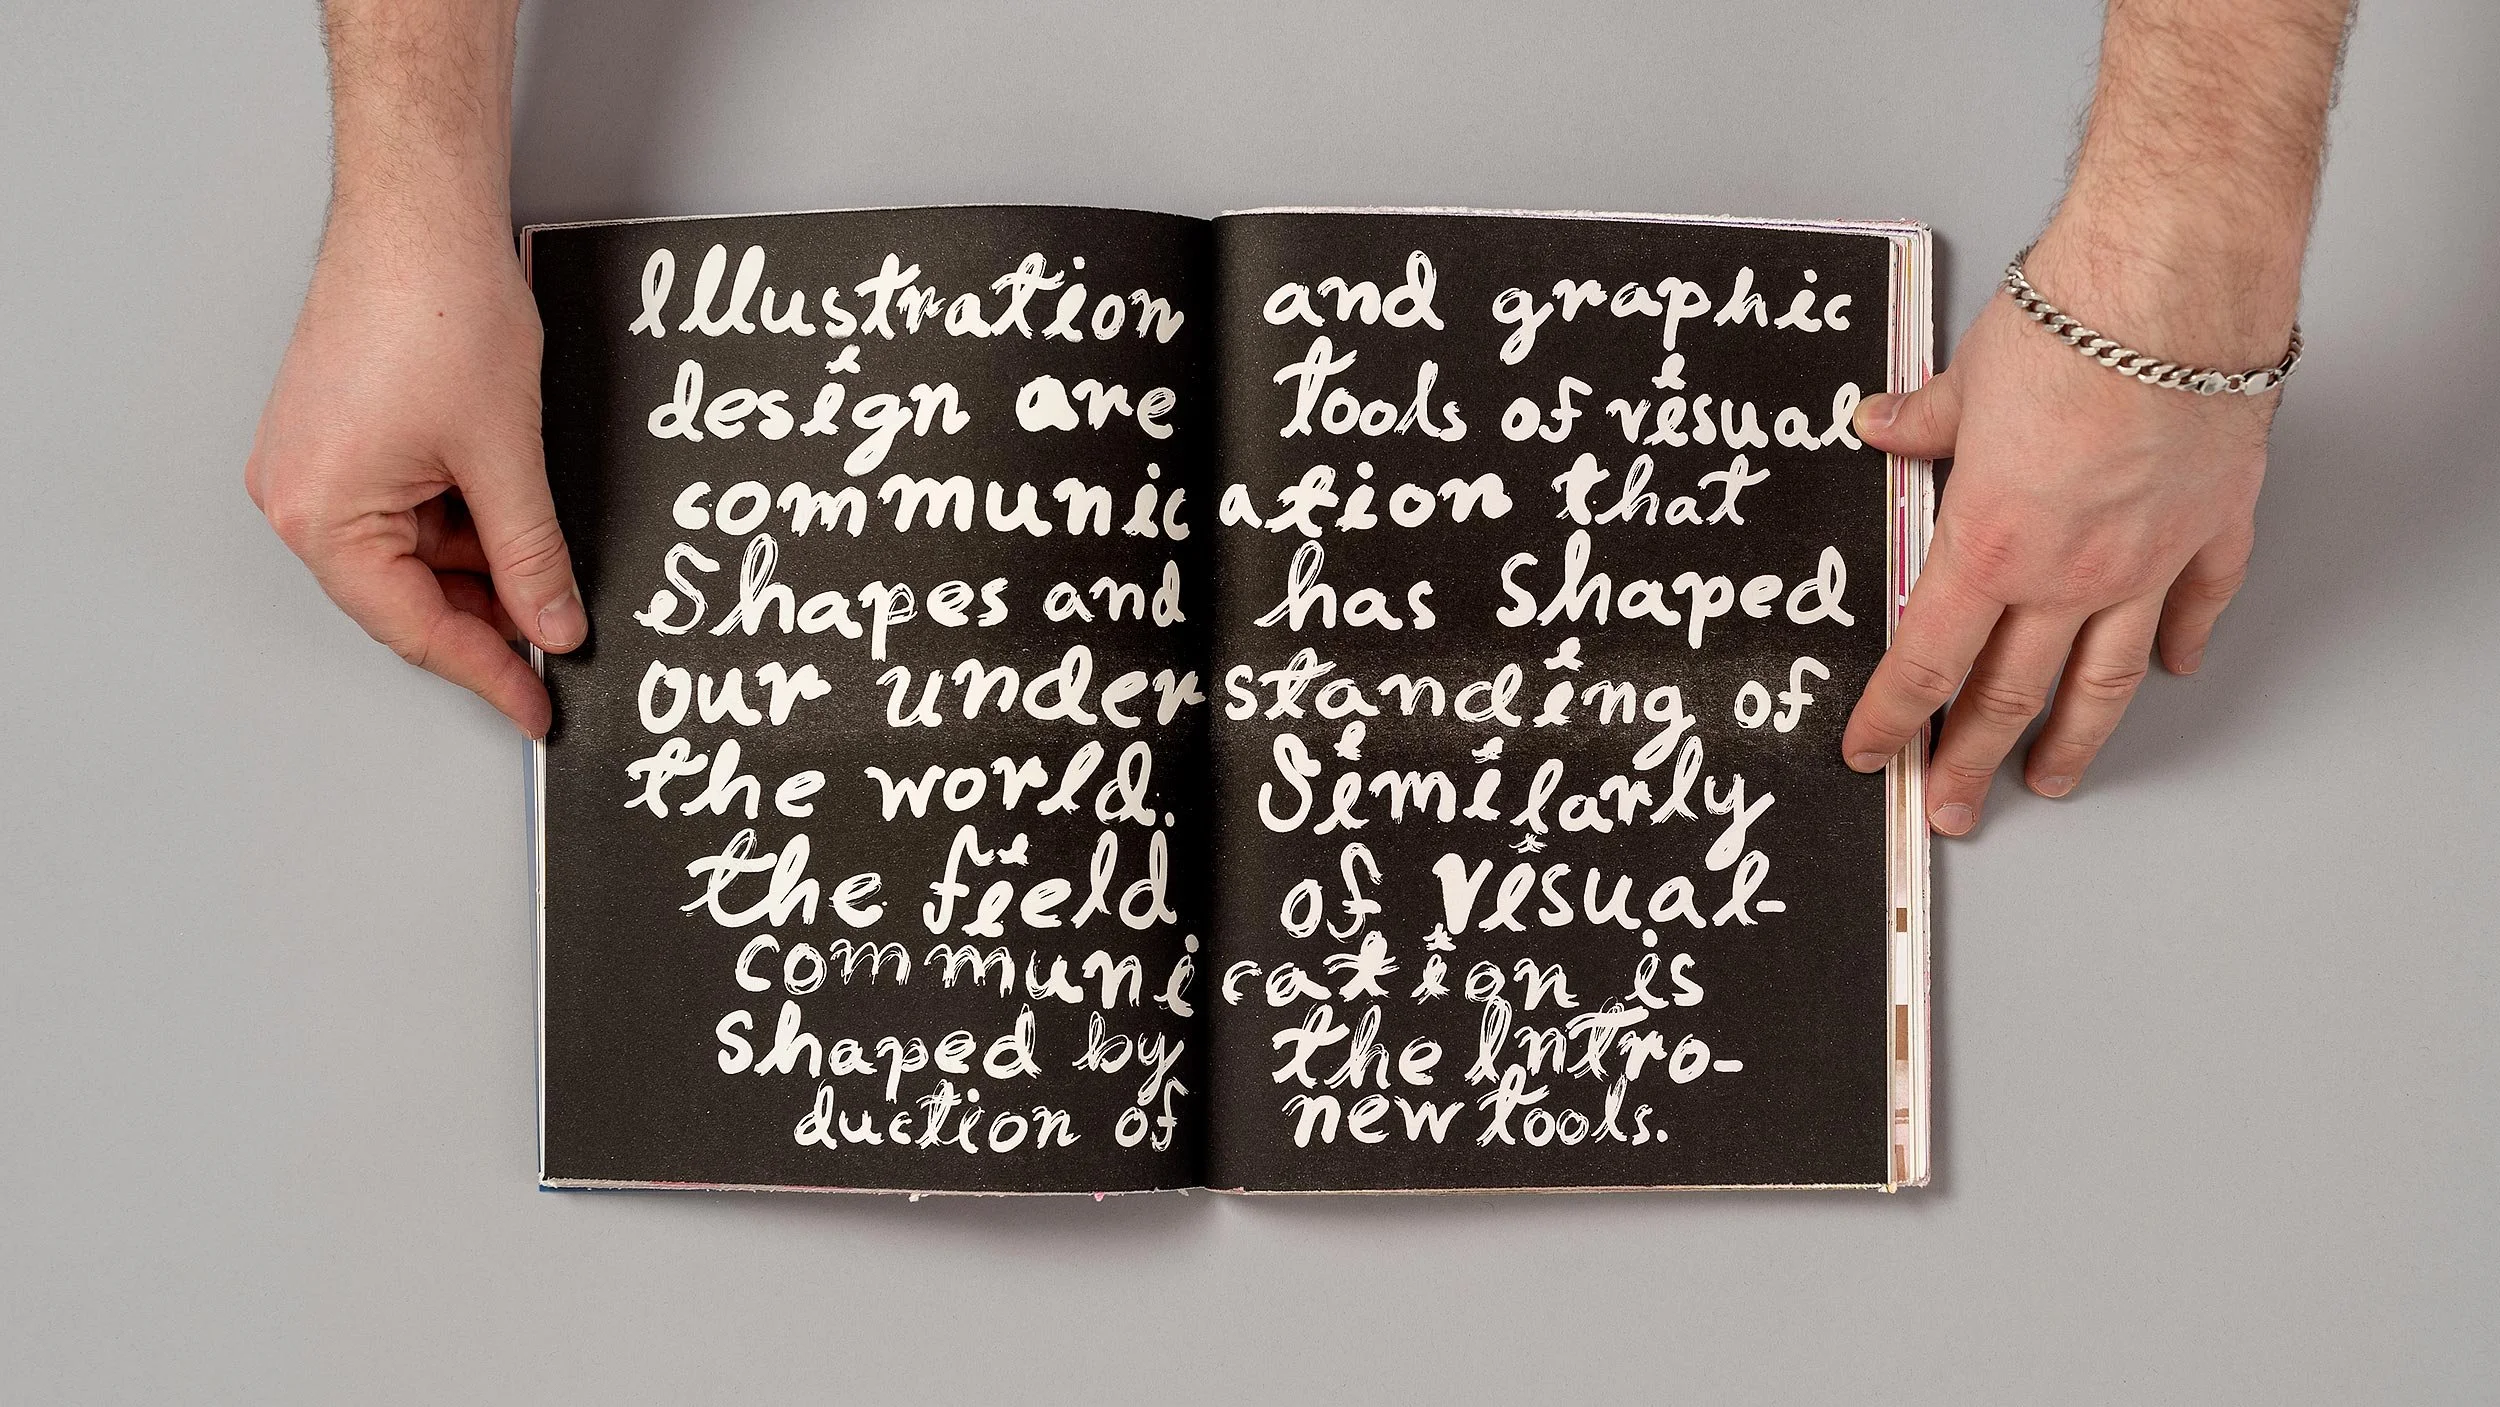 Illustration and graphic
design are tools of visual
communication that
Shapes and has shaped
our understanding of
the world. Similarly
the field of visual-
communication is
shaped by the Intro-
duction of new tools.